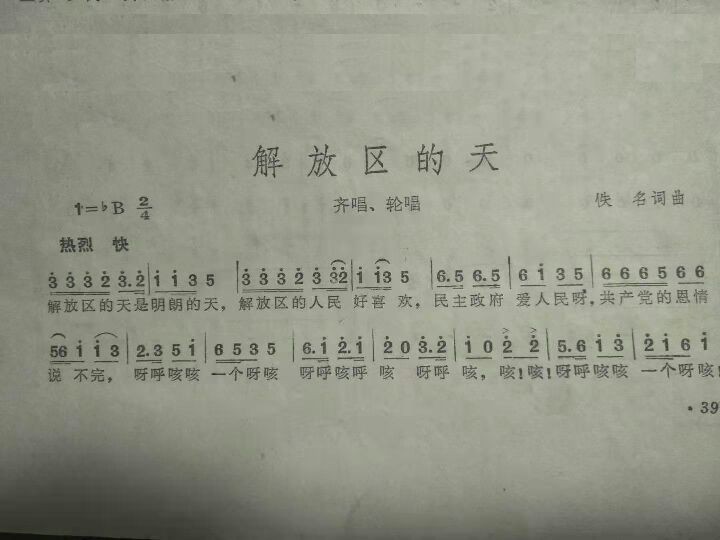 解放区的天
1=♭B 2/4 齐唱、轮唱 佚名词曲
热烈 快
3̇ 3̇ 3̇ 2̇ 3̇.2̇ | i i 3 5 | 3̇ 3̇ 3̇ 2̇ 3̇ 3̇2̇ | i i3 5 | 6.5 6.5 | 6 i 3 5 | 6 6 6 5 6 6
解放区的天是明朗的天，解放区的人民 好喜 欢，民主政府 爱人民呀，共产党的恩情
56 i i 3 | 2.3 5 i | 6 5 3 5 | 6.i 2̇.i | 2̇ 0 3̇.2̇ | i 0 2̇ 2̇ | 5.6 i 3̇ | 2̇ i 6 i
说 不完，呀呼咳咳 一个呀咳 呀呼咳呼 咳 呀呼 咳，咳！咳！呀呼咳咳 一个呀咳！
· 39